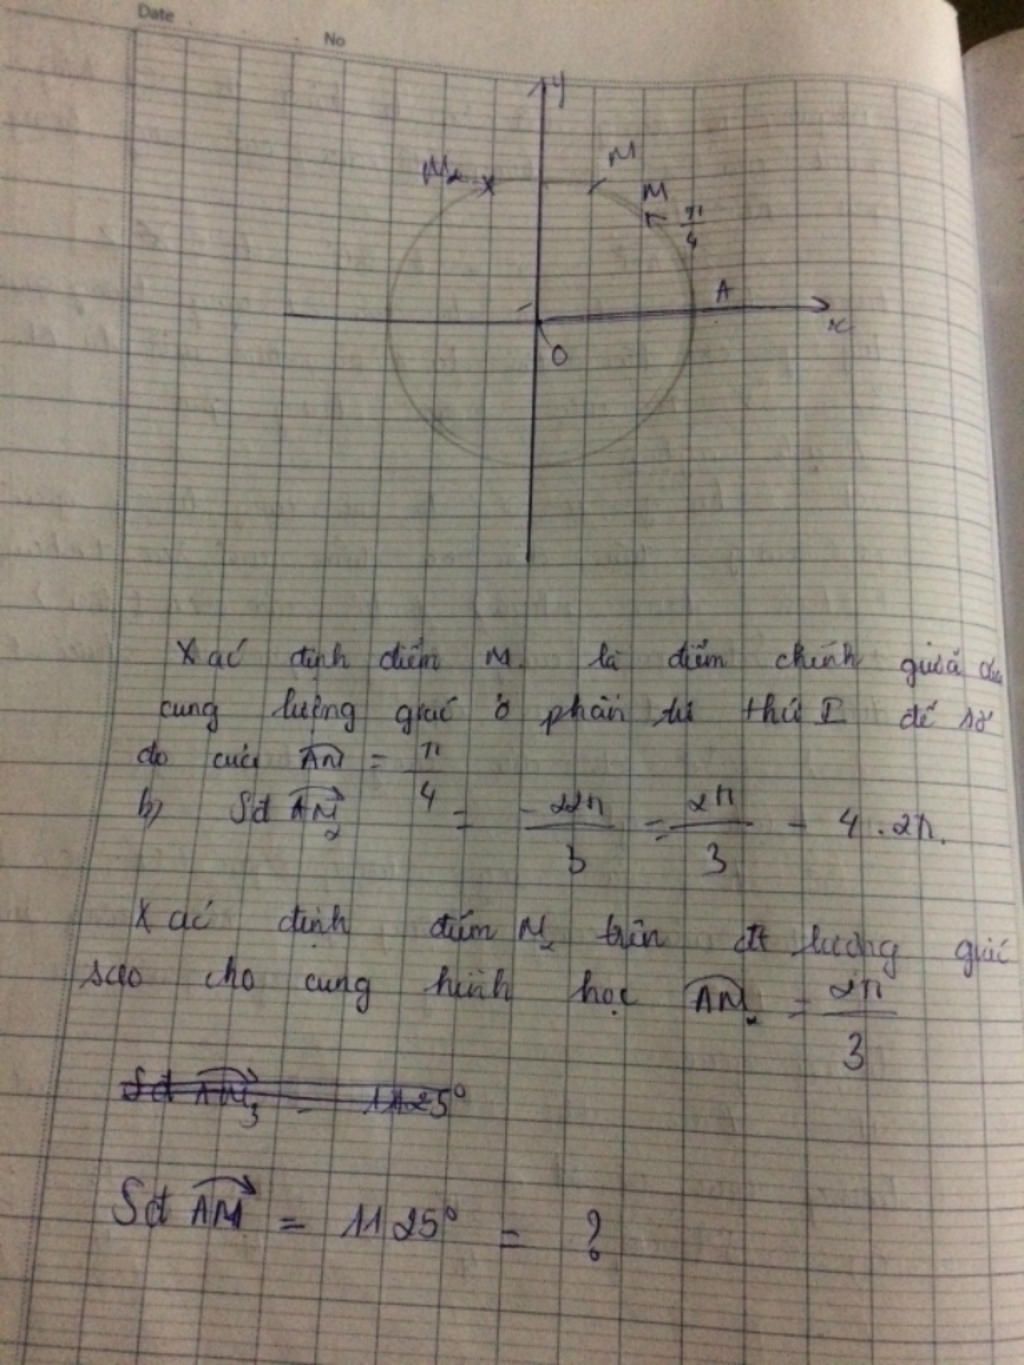 Date
No
y
M₂
M
M
π/4
A
x
O
Xác định điểm M là điểm chính giữa của
cung lượng giác ở phần tư thứ I để số
đo cung AM = π/4
b) Sđ AM₂ = -22π/3 = 2π/3 - 4.2π.
Xác định điểm M₂ trên đt lượng giác
sao cho cung hình học AM₂ = 2π/3
Sđ AM₃ = 1125°
Sđ AM = 1125° = ?